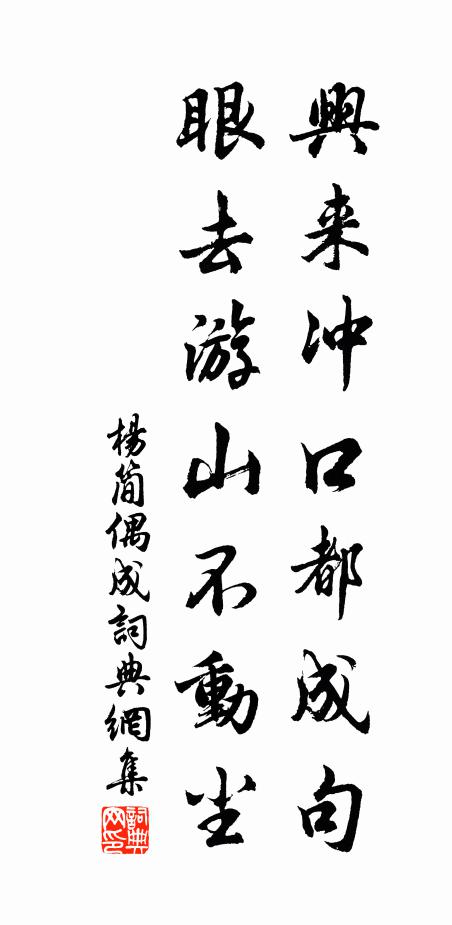 興来冲口都成句
眼去游山不動尘
楊簡偶成詞典網集
詞典网印